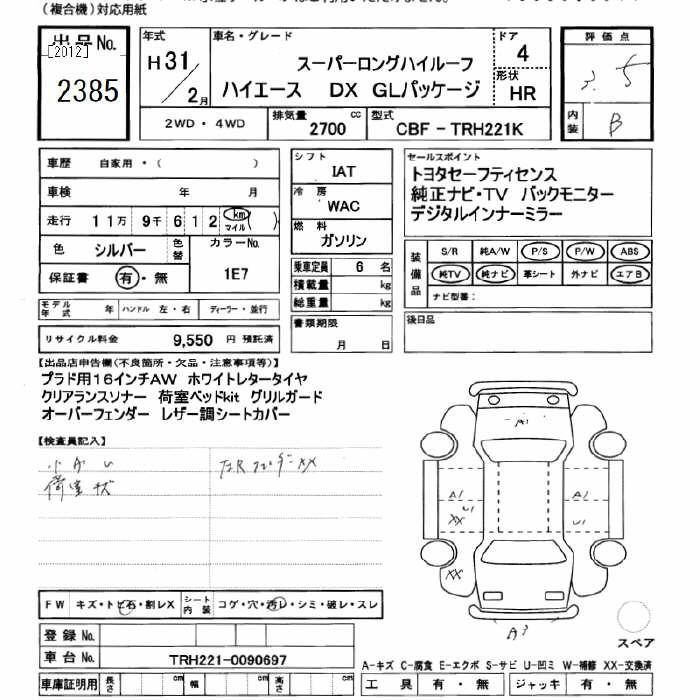 (複合機)対応用紙
出品No.
[2012]
2385
年式
H31/2月
車名・グレード
スーパーロングハイルーフ
ハイエース DX GLパッケージ
ドア
4
形状
HR
評価点
内装
B
2WD・4WD
排気量
2700 cc
型式
CBF-TRH221K
車歴 自家用・( )
車検 年 月
走行 11万 9千 6 1 2 km マイル ( )
色 シルバー 色替
カラーNo.
1E7
保証書 有・無
シフト
IAT
冷房
WAC
燃料
ガソリン
乗車定員 6 名
積載量 kg
総重量 kg
書類期限
月 日
セールスポイント
トヨタセーフティセンス
純正ナビ・TV バックモニター
デジタルインナーミラー
装備品
S/R 純A/W P/S P/W ABS
純TV 純ナビ 革シート 外ナビ エアB
ナビ型番:
後日品
モデル年式 年 ハンドル 左・右 ディーラー・並行
リサイクル料金 9,550 円 預託済
【出品店申告欄(不良箇所・欠品・注意事項等)】
プラド用16インチAW ホワイトレタータイヤ
クリアランスソナー 荷室ベッドkit グリルガード
オーバーフェンダー レザー調シートカバー
【検査員記入】
荷室キズ
XX
A1
A1
U1
XX
A1
U1
XX
A3
FW キズ・トビ石・割レX
シート内装 コゲ・穴・汚レ・シミ・破レ・スレ
登録No.
車台No. TRH221-0090697
車庫証明用 長さ cm 幅 cm 高さ cm
スペア
A-キズ C-腐食 E-エクボ S-サビ U-凹ミ W-補修 XX-交換済
工具 有・無 ジャッキ 有・無